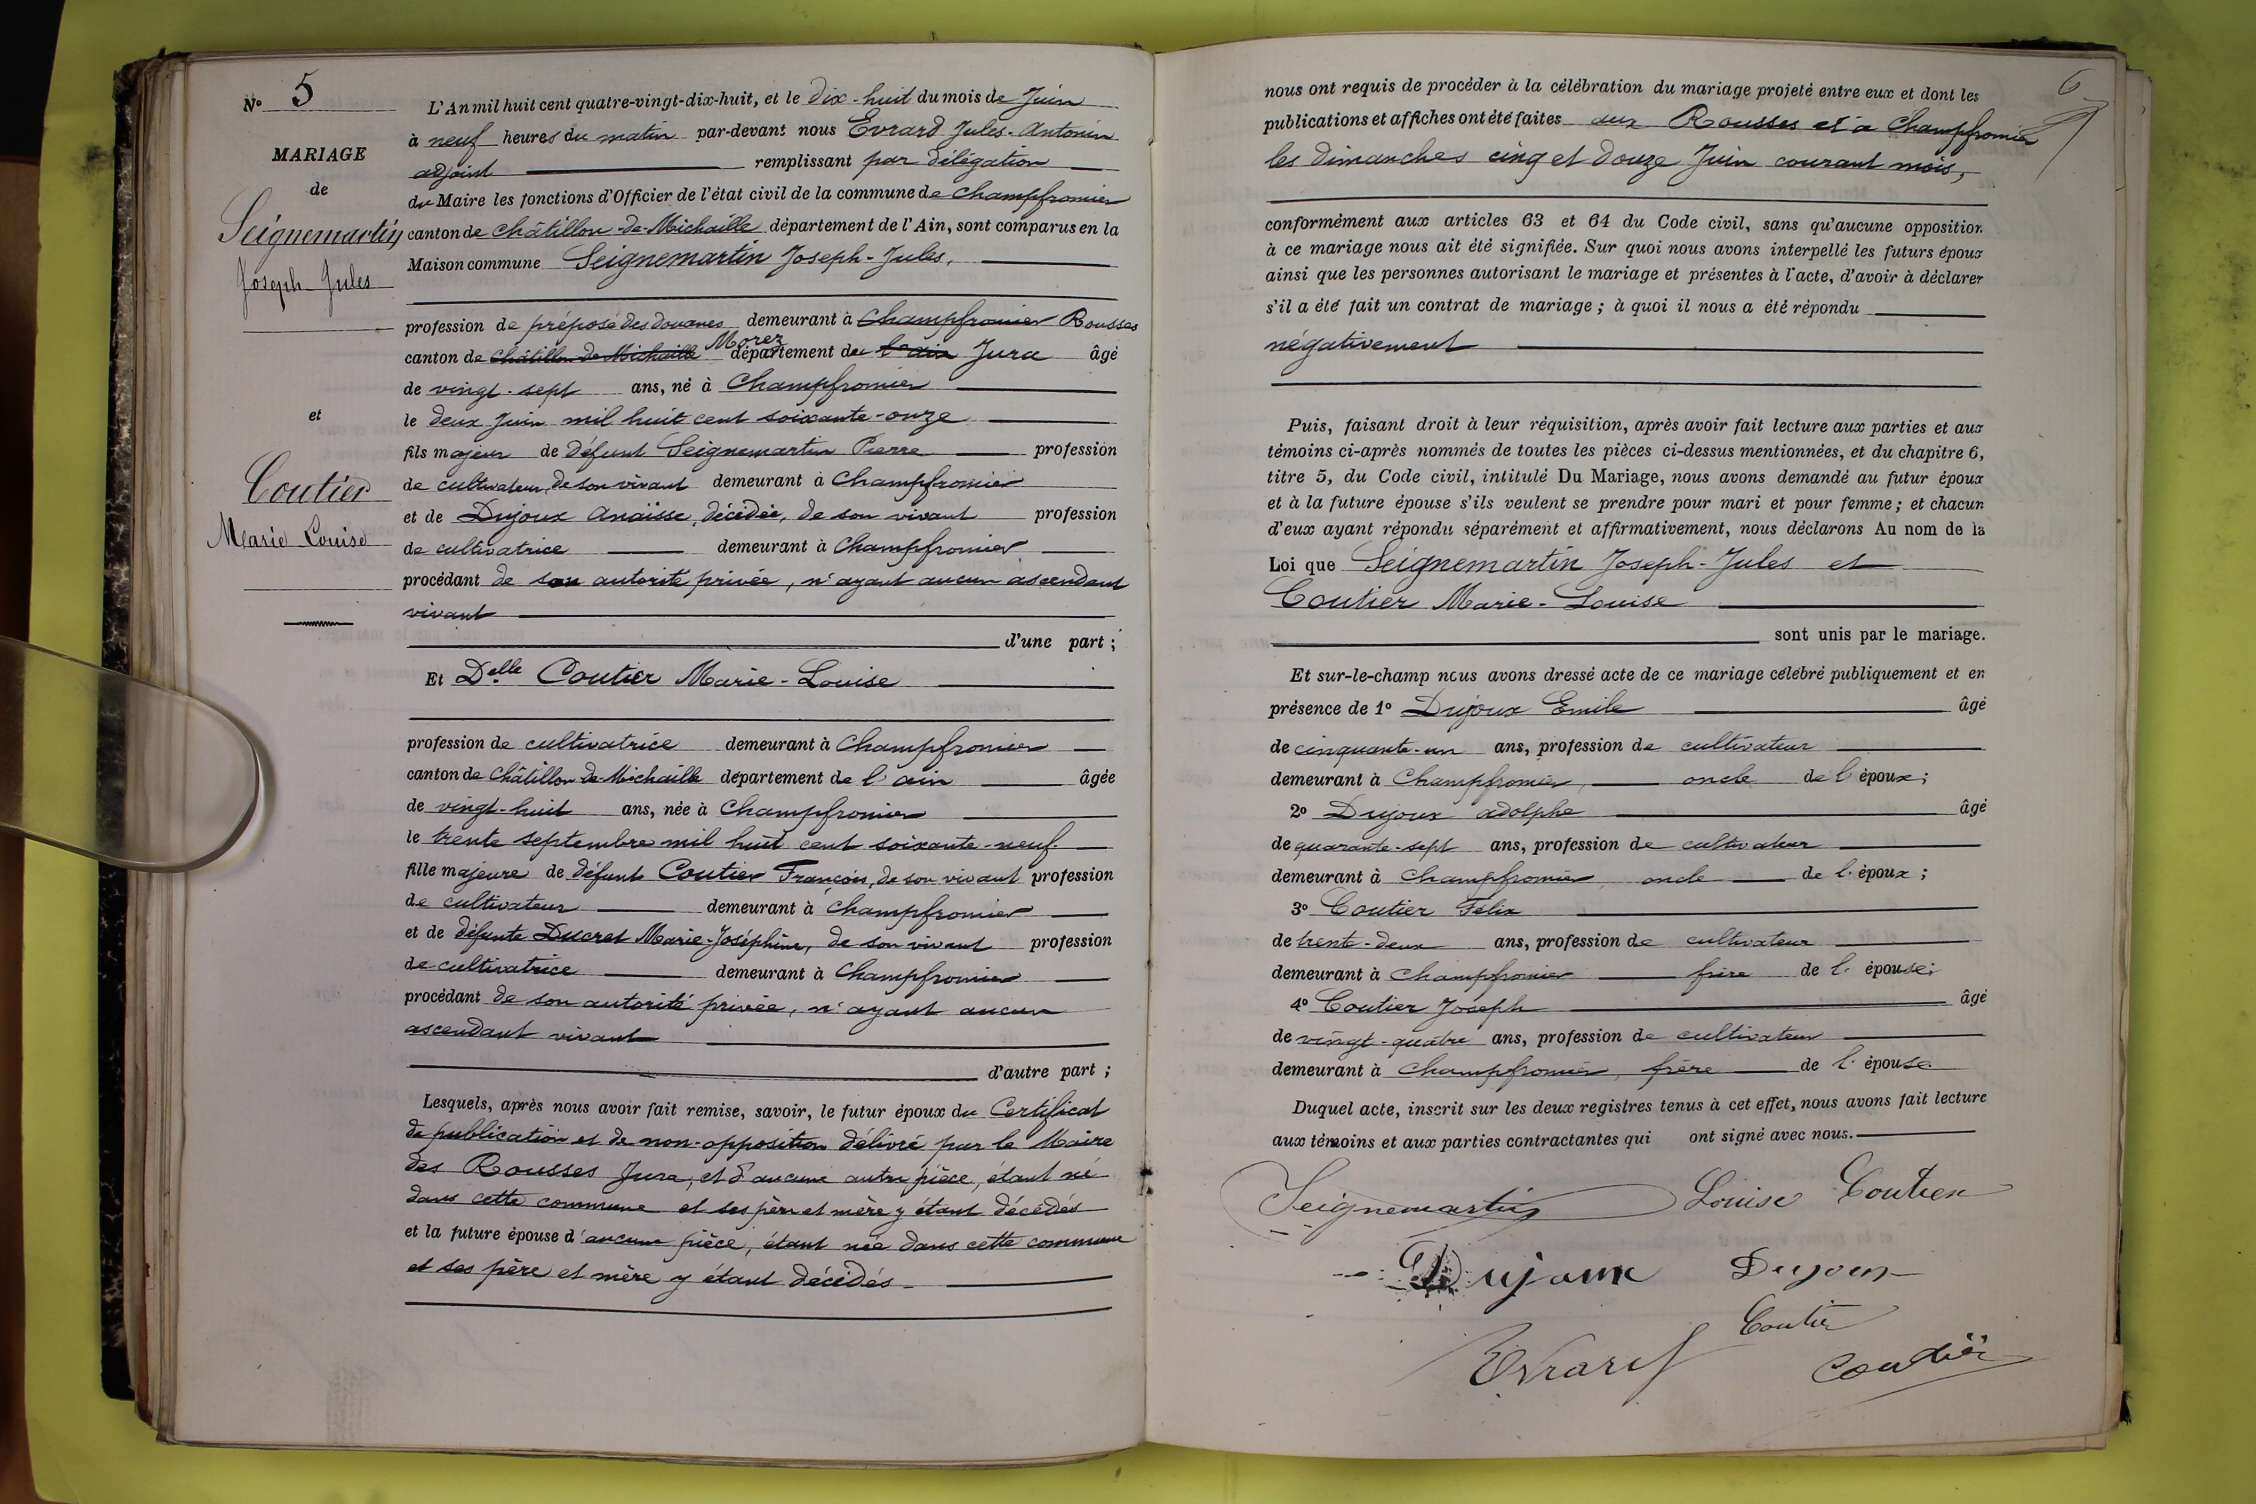 N° 5
MARIAGE
de
Seignemartin
Joseph Jules
et
Coutier
Marie Louise
L'An mil huit cent quatre-vingt-dix-huit, et le dix-huit du mois de Juin
à neuf heures du matin par-devant nous Evrard Jules-Antonin
adjoint remplissant par délégation
du Maire les fonctions d'Officier de l'état civil de la commune de Champfromier
canton de Châtillon-de-Michaille département de l'Ain, sont comparus en la
Maison commune Seignemartin Joseph-Jules,
profession de préposé des douanes demeurant à Champfromier Rousses
canton de Châtillon de Michaille Morez département de l'ain Jura âgé
de vingt-sept ans, né à Champfromier
le deux Juin mil huit cent soixante-onze
fils majeur de défunt Seignemartin Pierre profession
de cultivateur de son vivant demeurant à Champfromier
et de Dujoux Anaïsse, décédée, de son vivant profession
de cultivatrice demeurant à Champfromier
procédant de son autorité privée, n'ayant aucun ascendant
vivant
d'une part ;
Et Delle Coutier Marie-Louise
profession de cultivatrice demeurant à Champfromier
canton de Châtillon de Michaille département de l'ain âgée
de vingt-huit ans, née à Champfromier
le trente septembre mil huit cent soixante-neuf
fille majeure de défunt Coutier François, de son vivant profession
de cultivateur demeurant à Champfromier
et de défunte Ducret Marie-Joséphine, de son vivant profession
de cultivatrice demeurant à Champfromier
procédant de son autorité privée, n'ayant aucun
ascendant vivant
d'autre part ;
Lesquels, après nous avoir fait remise, savoir, le futur époux du Certificat
de publication et de non-opposition délivré par le Maire
des Rousses Jura, et d'aucune autre pièce, étant né
dans cette commune et ses père et mère y étant décédés
et la future épouse d'aucune pièce, étant née dans cette commune
et ses père et mère y étant décédés
6
nous ont requis de procéder à la célébration du mariage projeté entre eux et dont les
publications et affiches ont été faites aux Rousses et à Champfromier
les dimanches cinq et douze Juin courant mois,
conformément aux articles 63 et 64 du Code civil, sans qu'aucune opposition
à ce mariage nous ait été signifiée. Sur quoi nous avons interpellé les futurs époux
ainsi que les personnes autorisant le mariage et présentes à l'acte, d'avoir à déclarer
s'il a été fait un contrat de mariage ; à quoi il nous a été répondu
négativement
Puis, faisant droit à leur réquisition, après avoir fait lecture aux parties et aux
témoins ci-après nommés de toutes les pièces ci-dessus mentionnées, et du chapitre 6,
titre 5, du Code civil, intitulé Du Mariage, nous avons demandé au futur époux
et à la future épouse s'ils veulent se prendre pour mari et pour femme ; et chacun
d'eux ayant répondu séparément et affirmativement, nous déclarons Au nom de la
Loi que Seignemartin Joseph-Jules et
Coutier Marie-Louise
sont unis par le mariage.
Et sur-le-champ nous avons dressé acte de ce mariage célébré publiquement et en
présence de 1° Dujoux Emile âgé
de cinquante-un ans, profession de cultivateur
demeurant à Champfromier, oncle de l'époux ;
2° Dujoux adolphe âgé
de quarante-sept ans, profession de cultivateur
demeurant à Champfromier oncle de l'époux ;
3° Coutier Félix
de trente-deux ans, profession de cultivateur
demeurant à Champfromier frère de l'épouse;
4° Coutier Joseph âgé
de vingt-quatre ans, profession de cultivateur
demeurant à Champfromier, frère de l'épouse
Duquel acte, inscrit sur les deux registres tenus à cet effet, nous avons fait lecture
aux témoins et aux parties contractantes qui ont signé avec nous.
Seignemartin Louise Coutier
Dujoux Dujoux
Coutier
Evrard Coutier